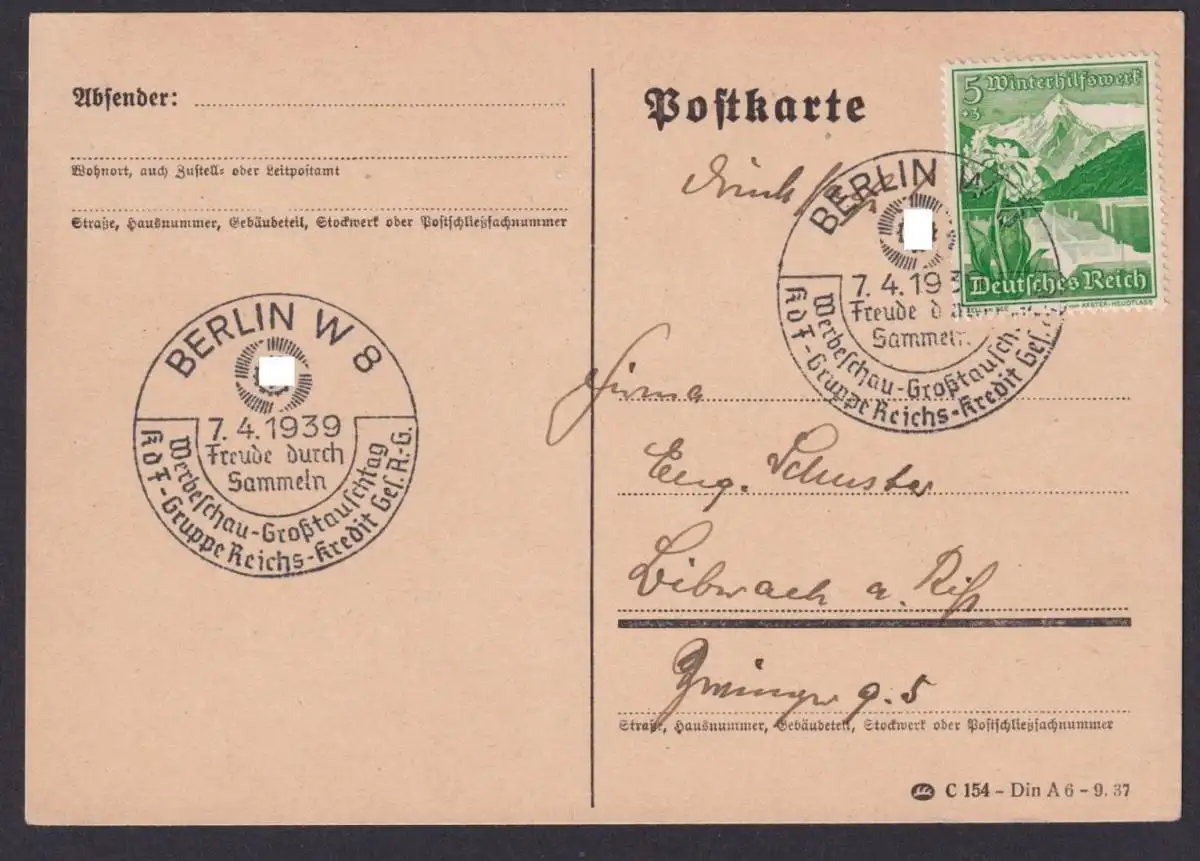 Absender:
Wohnort, auch Zustell- oder Leitpostamt
Straße, Hausnummer, Gebäudeteil, Stockwerk oder Postschließfachnummer
BERLIN W 8
7. 4. 1939
Freude durch
Sammeln
Werbeschau-Großtauschtag
KdF-Gruppe Reichs-Kredit Ges. A.-G.
Postkarte
5 Winterhilfswerk
+3
Deutsches Reich
BERLIN W
7. 4. 19
Freude
Sammeln
Werbeschau-Großtausch
KdF-Gruppe Reichs-Kredit Ges.
Firma
Eug. Schuster
Biberach a. Riß
g. 5
Straße, Hausnummer, Gebäudeteil, Stockwerk oder Postschließfachnummer
C 154 - Din A 6 - 9. 37